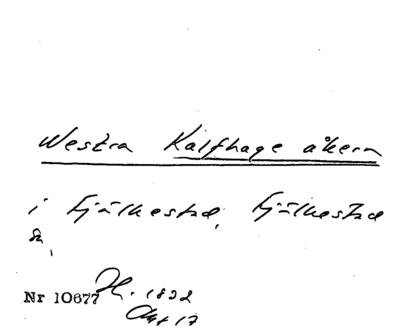 Westra Kalfhage åkern
i Fjälkestad, Fjälkestad
s.
Nr 10677 H. 1832
Akt 17